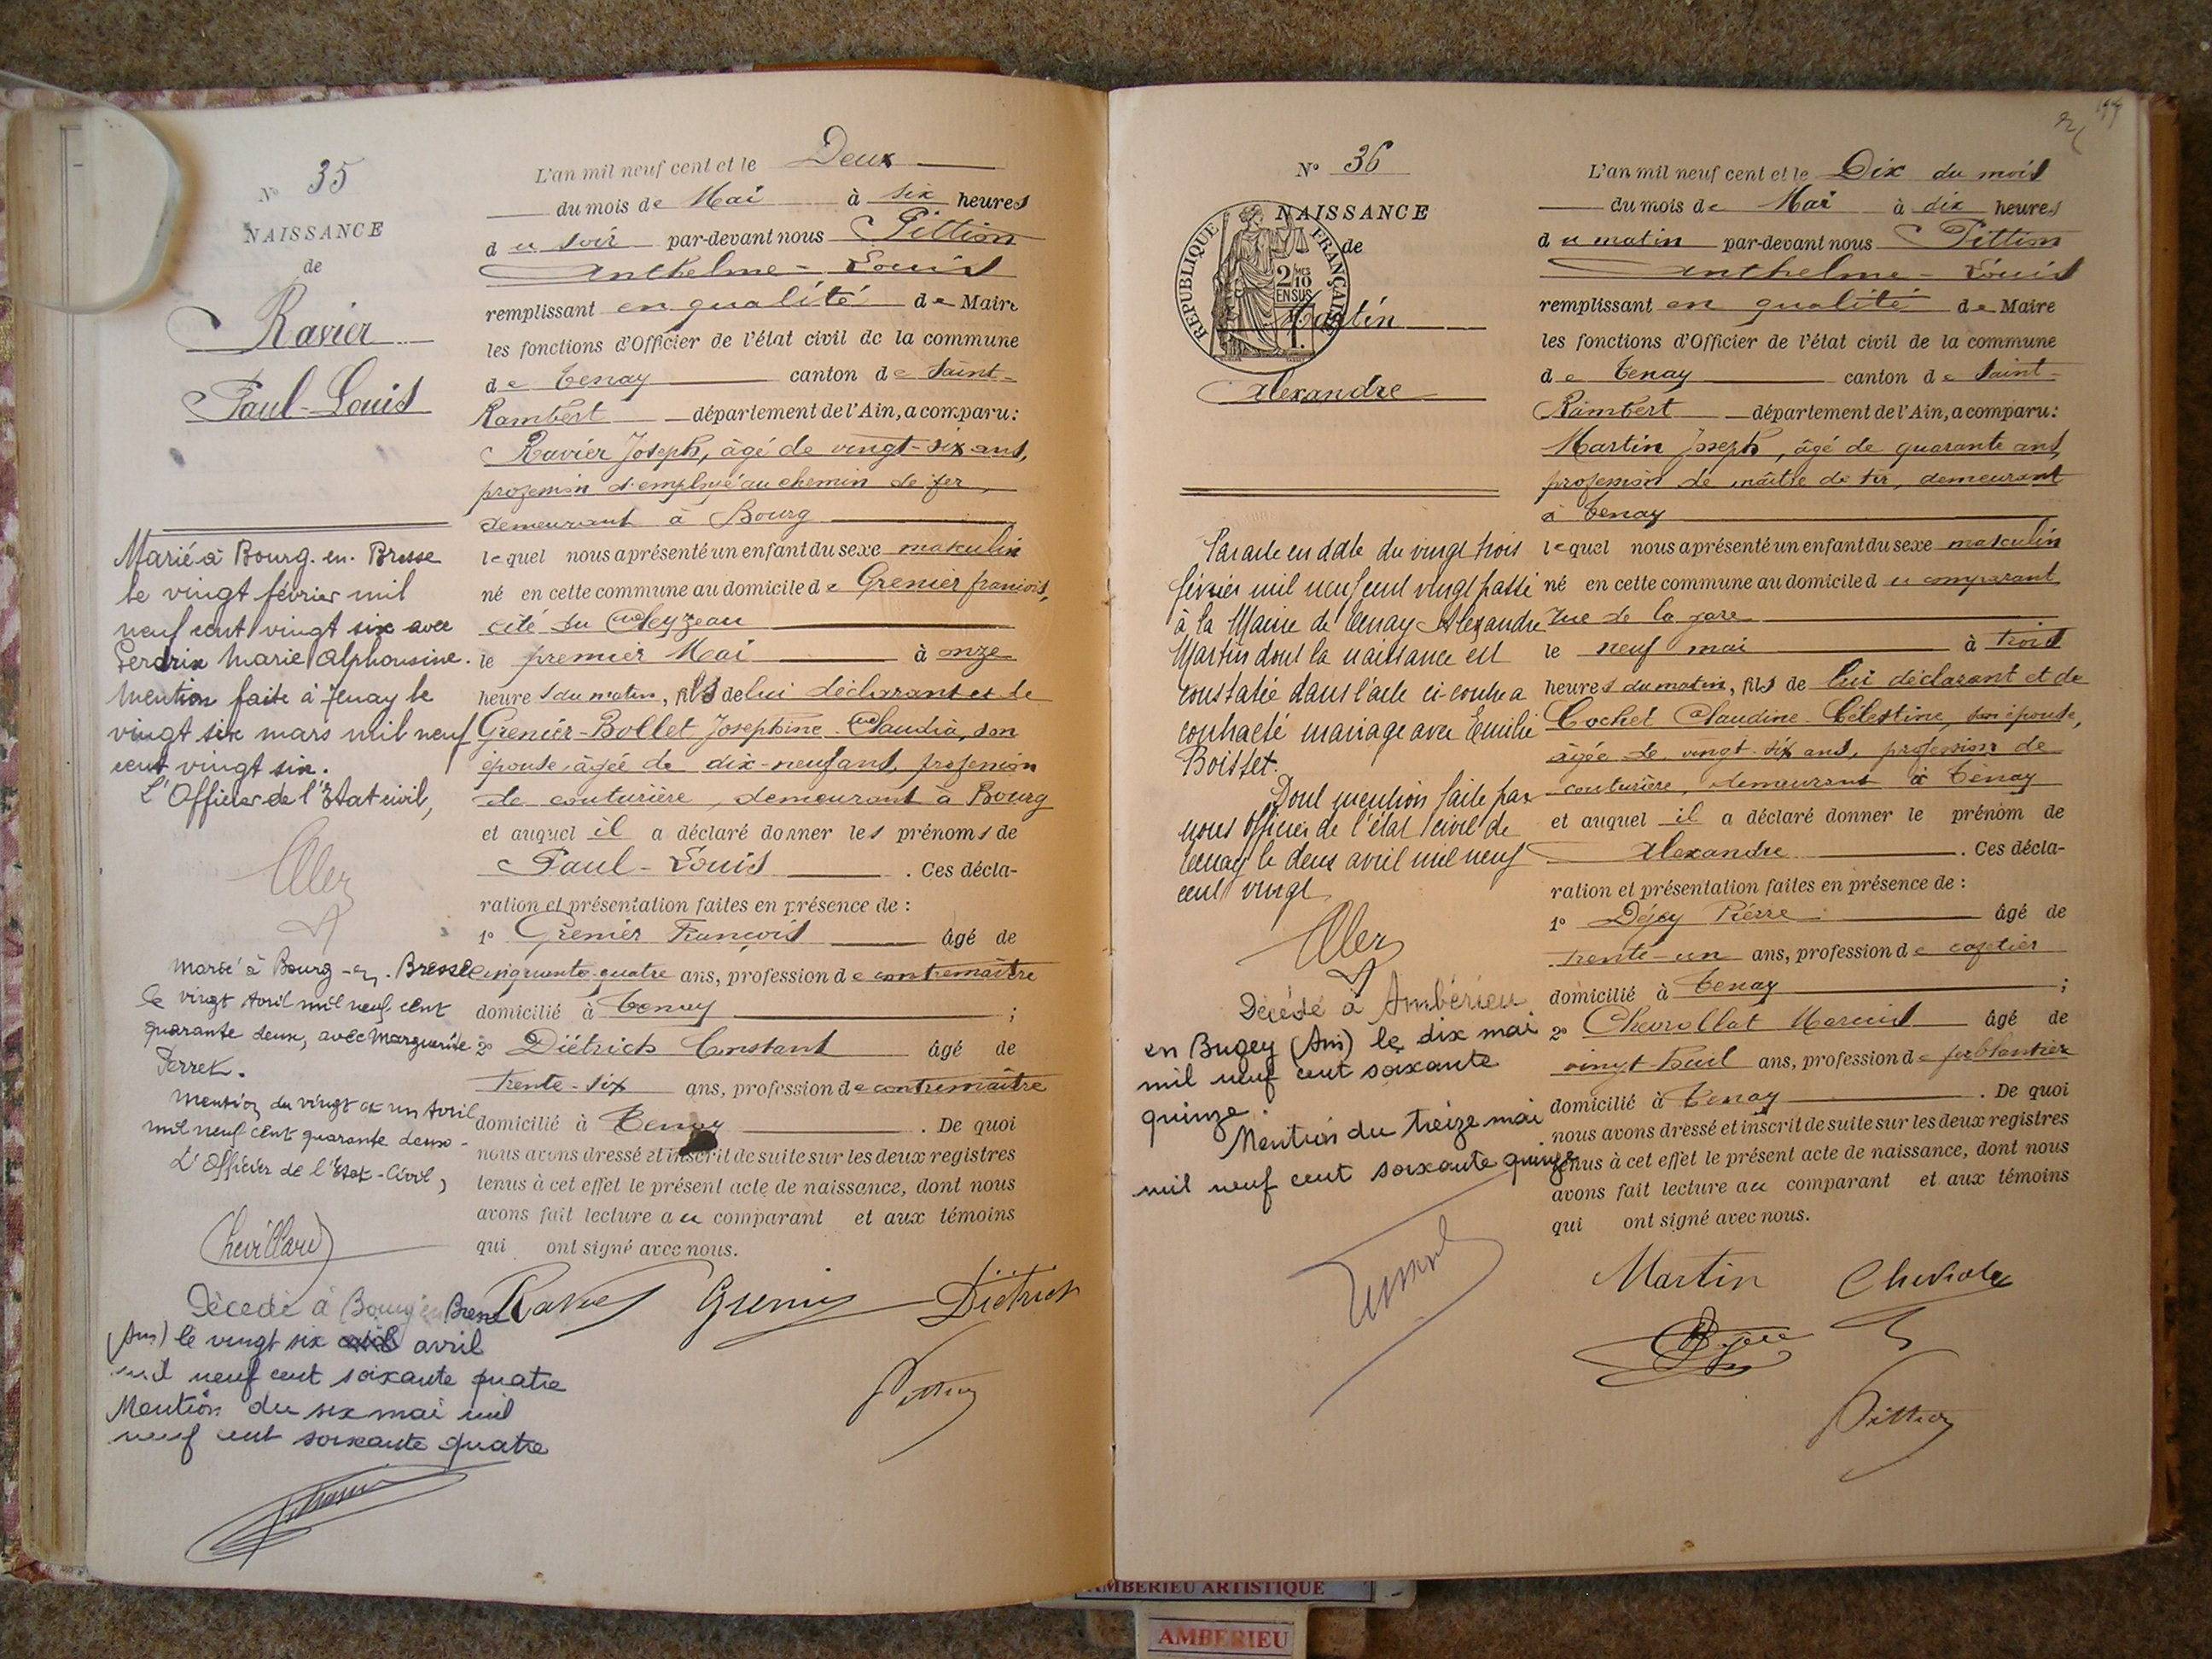 N° 35
NAISSANCE
de
Ravier
Paul-Louis
Marié à Bourg-en-Bresse
le vingt février mil
neuf cent vingt six avec
Perdrix Marie Alphonsine.
Mention faite à Tenay le
vingt six mars mil neuf
cent vingt six.
L'Officier de l'Etat civil,
Marié à Bourg-en-Bresse
le vingt Avril mil neuf cent
quarante deux, avec Marguerite
Perret.
Mention du vingt et un Avril
mil neuf cent quarante deux.
L'Officier de l'Etat-Civil,
Chevillard
Décédé à Bourg en Bresse
(Ain) le vingt six avril
mil neuf cent soixante quatre
Mention du six mai mil
neuf cent soixante quatre
L'an mil neuf cent et le Deux
du mois de Mai à six heures
du soir par-devant nous Pittion
Anthelme-Louis
remplissant en qualité de Maire
les fonctions d'Officier de l'état civil de la commune
de Tenay canton de Saint-
Rambert département de l'Ain, a comparu:
Ravier Joseph, âgé de vingt-six ans,
profession d'employé au chemin de fer,
demeurant à Bourg
lequel nous a présenté un enfant du sexe masculin
né en cette commune au domicile de Grenier françois,
cité du Cleyzeau
le premier Mai à onze
heures du matin, fils de lui déclarant et de
Grenier-Bollet Joséphine Claudia, son
épouse, âgée de dix-neuf ans, profession
de couturière, demeurant à Bourg
et auquel il a déclaré donner les prénoms de
Paul-Louis. Ces décla-
ration et présentation faites en présence de:
1° Grenier François âgé de
cinquante-quatre ans, profession de contremaître
domicilié à Tenay;
2° Diétrich Constant âgé de
trente-six ans, profession de contremaître
domicilié à Tenay. De quoi
nous avons dressé et inscrit de suite sur les deux registres
tenus à cet effet le présent acte de naissance, dont nous
avons fait lecture au comparant et aux témoins
qui ont signé avec nous.
Ravier Grenier Dietrich
Pittion
N° 36
NAISSANCE
de
RÉPUBLIQUE FRANÇAISE
2/10 EN SUS
Martin
Alexandre
Par acte en date du vingt trois
février mil neuf cent vingt passé
à la Mairie de Tenay Alexandre
Martin dont la naissance est
constatée dans l'acte ci-contre a
contracté mariage avec Emilie
Boisset.
Dont mention faite par
nous officier de l'état civil de
Tenay le deux avril mil neuf
cent vingt
Décédé à Ambérieu
en Bugey (Ain) le dix mai
mil neuf cent soixante
quinze.
Mention du treize mai
mil neuf cent soixante quinze
L'an mil neuf cent et le Dix du mois
du mois de Mai à dix heures
du matin par-devant nous Pittion
Anthelme-Louis
remplissant en qualité de Maire
les fonctions d'Officier de l'état civil de la commune
de Tenay canton de Saint-
Rambert département de l'Ain, a comparu:
Martin Joseph, âgé de quarante ans,
profession de maître de tir, demeurant
à Tenay
lequel nous a présenté un enfant du sexe masculin
né en cette commune au domicile du comparant
rue de la gare
le neuf mai à trois
heures du matin, fils de lui déclarant et de
Cochet Claudine Célestine, son épouse,
âgée de vingt-six ans, profession de
couturière, demeurant à Tenay
et auquel il a déclaré donner le prénom de
Alexandre. Ces décla-
ration et présentation faites en présence de:
1° Déjey Pierre âgé de
trente-un ans, profession de cafetier
domicilié à Tenay;
2° Chevrollat Marius âgé de
vingt-huit ans, profession de ferblantier
domicilié à Tenay. De quoi
nous avons dressé et inscrit de suite sur les deux registres
tenus à cet effet le présent acte de naissance, dont nous
avons fait lecture au comparant et aux témoins
qui ont signé avec nous.
Martin
Pittion
AMBERIEU ARTISTIQUE
AMBERIEU